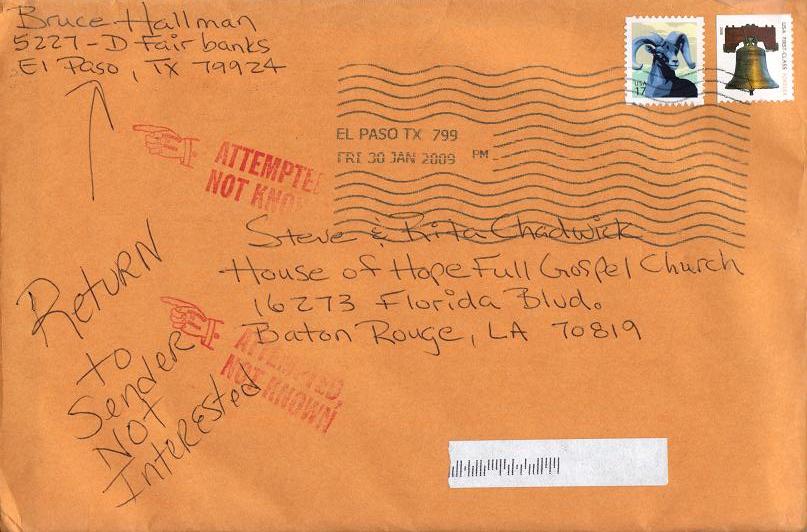 Bruce Hallman
5227-D Fairbanks
El Paso, TX 79924
USA
17
USA FIRST-CLASS
EL PASO TX 799
FRI 30 JAN 2009 PM
ATTEMPTED
NOT KNO
Steve & Rita Chadwick
House of Hope Full Gospel Church
16273 Florida Blvd.
Baton Rouge, LA 70819
Return
to
Sender
Not
Interested
ATTEMPTED,
NOT KNOWN